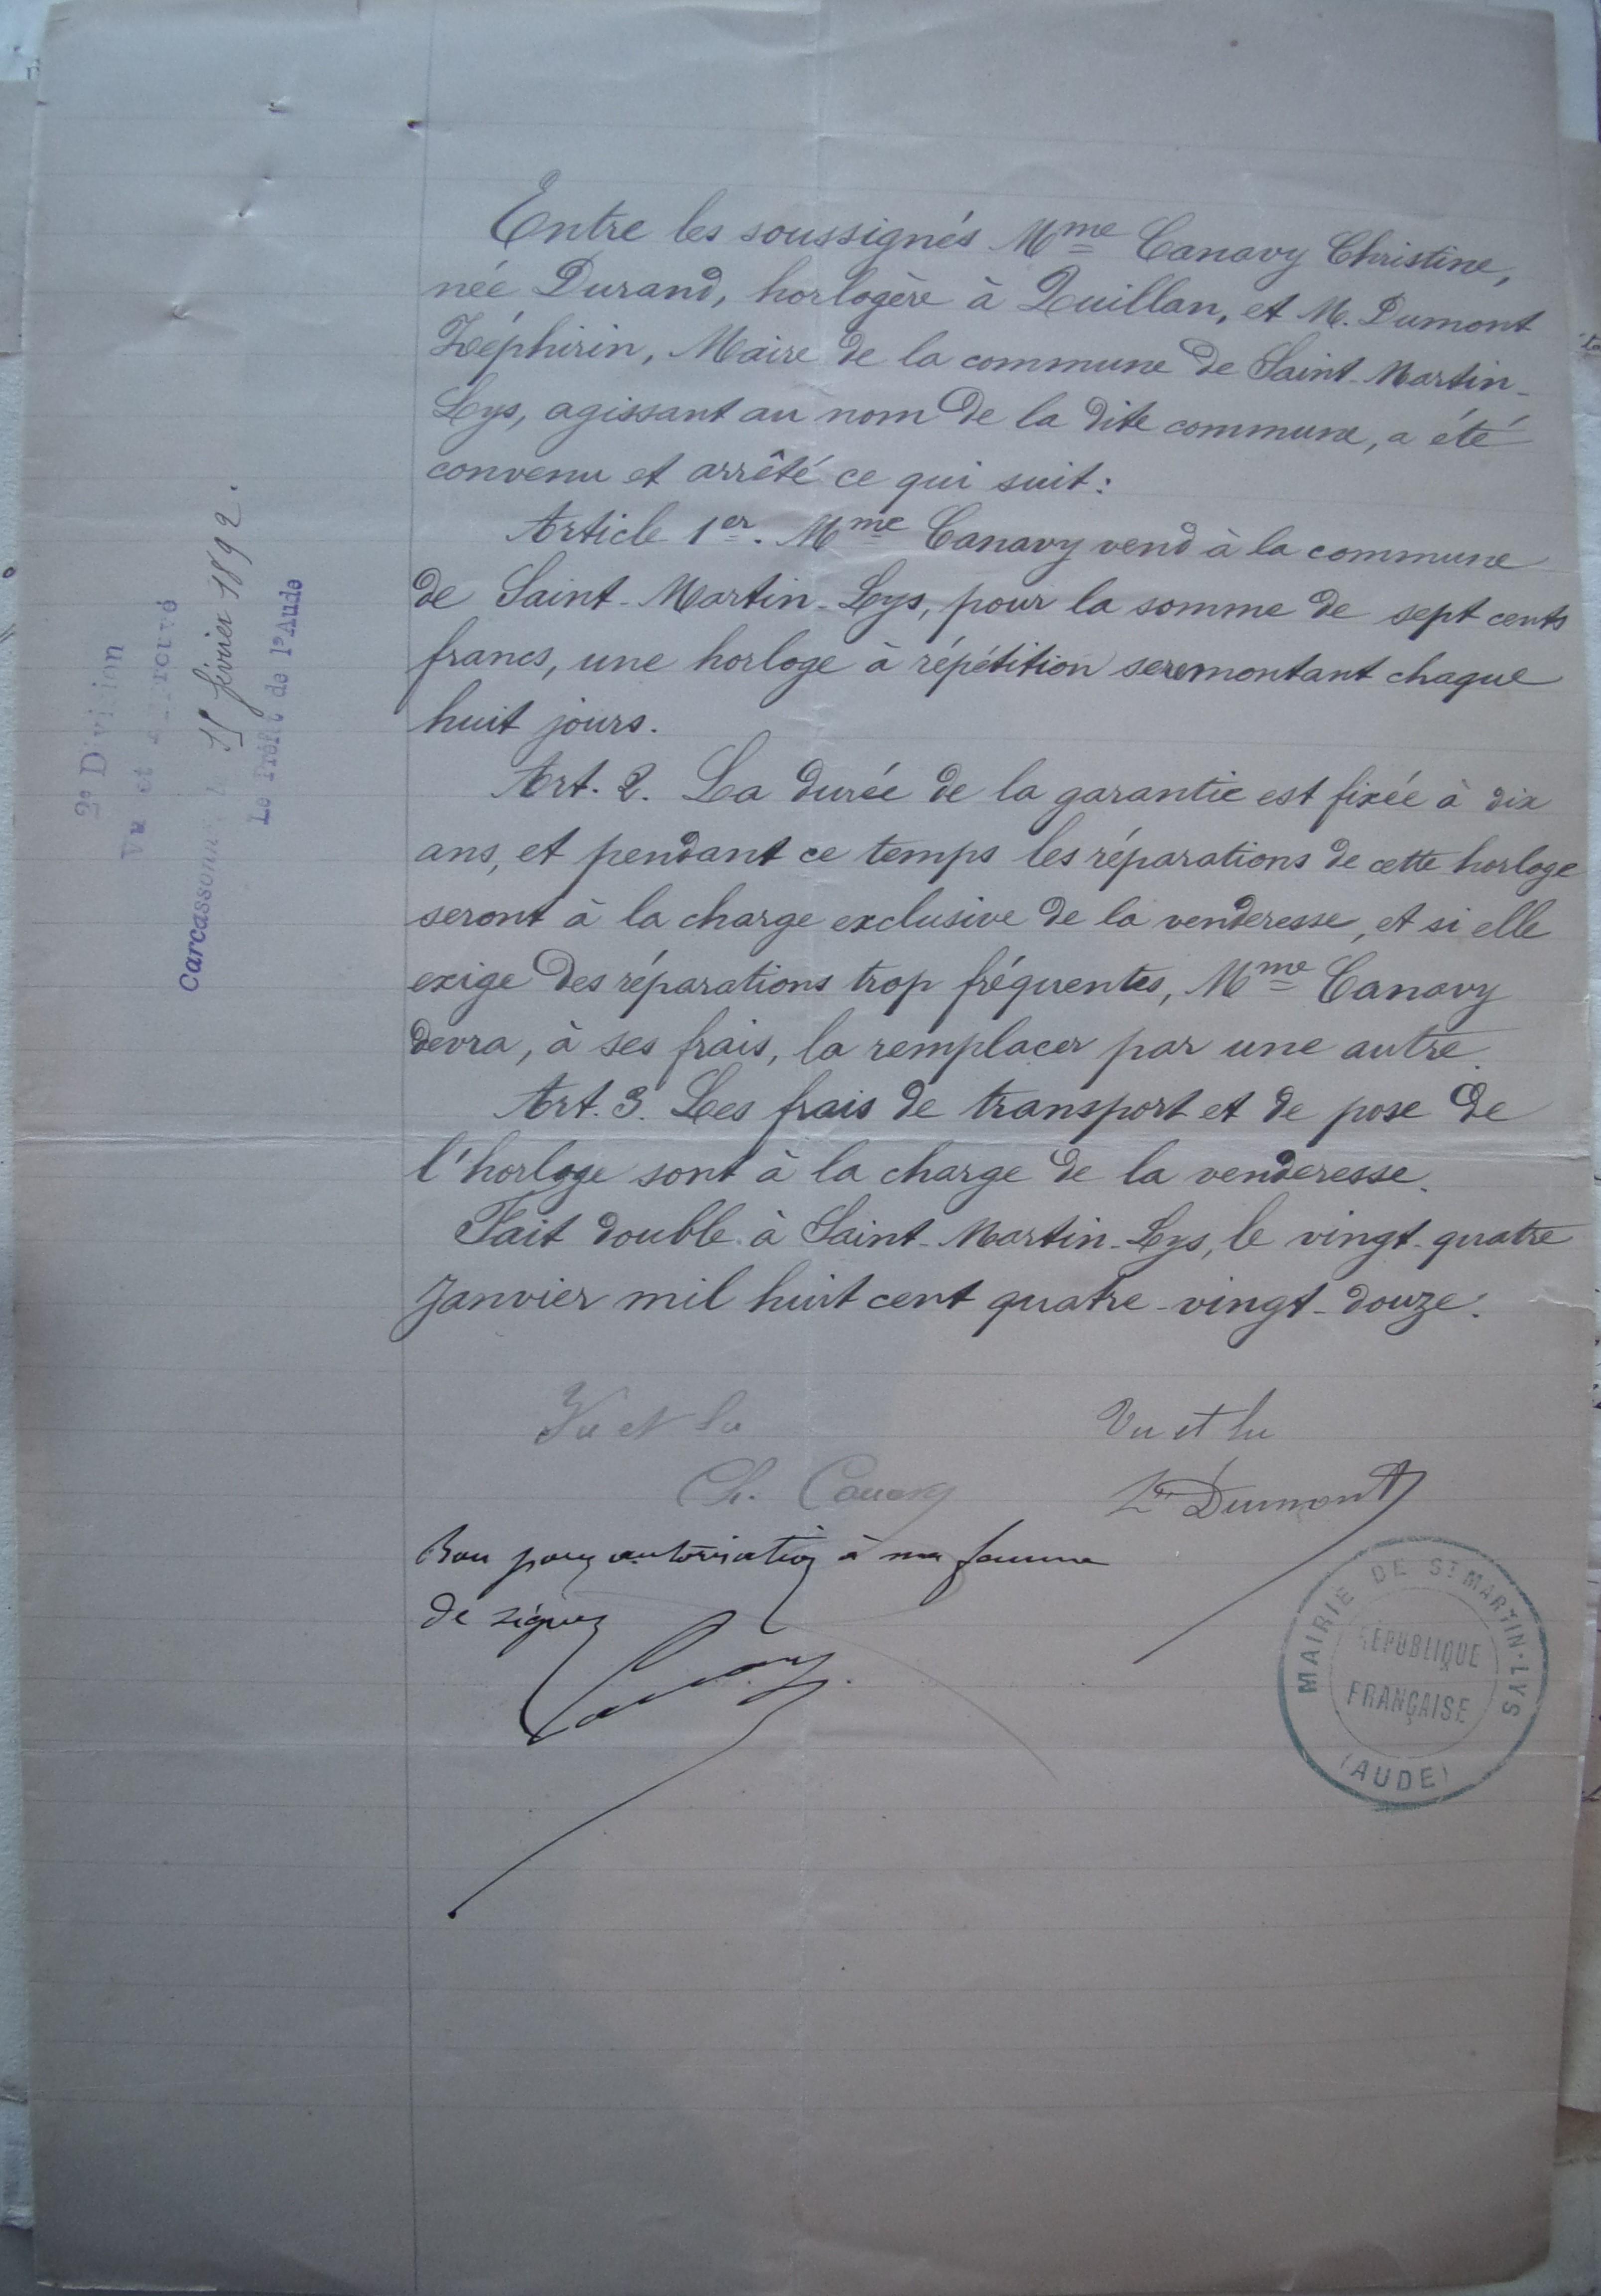 Entre les soussignés Mme Canavy Christine,
née Durand, horlogère à Quillan, et M. Dumont
Zéphirin, Maire de la commune de Saint-Martin-
Lys, agissant au nom de la dite commune, a été
convenu et arrêté ce qui suit:
Article 1er. Mme Canavy vend à la commune
de Saint-Martin-Lys, pour la somme de sept cents
francs, une horloge à répétition se remontant chaque
huit jours.
Art. 2. La durée de la garantie est fixée à dix
ans, et pendant ce temps les réparations de cette horloge
seront à la charge exclusive de la venderesse, et si elle
exige des réparations trop fréquentes, Mme Canavy
devra, à ses frais, la remplacer par une autre.
Art. 3. Les frais de transport et de pose de
l'horloge sont à la charge de la venderesse.
Fait double à Saint-Martin-Lys, le vingt-quatre
Janvier mil huit cent quatre-vingt-douze.
Vu et lu
Vu et lu
Ch. Canavy
Zin Dumont
Bon pour autorisation à ma femme
de signer
Canavy
MAIRIE DE ST MARTIN-LYS
RÉPUBLIQUE
FRANÇAISE
(AUDE)
2e Division
Vu et approuvé
Carcassonne le février 1892.
Le Préfet de l'Aude